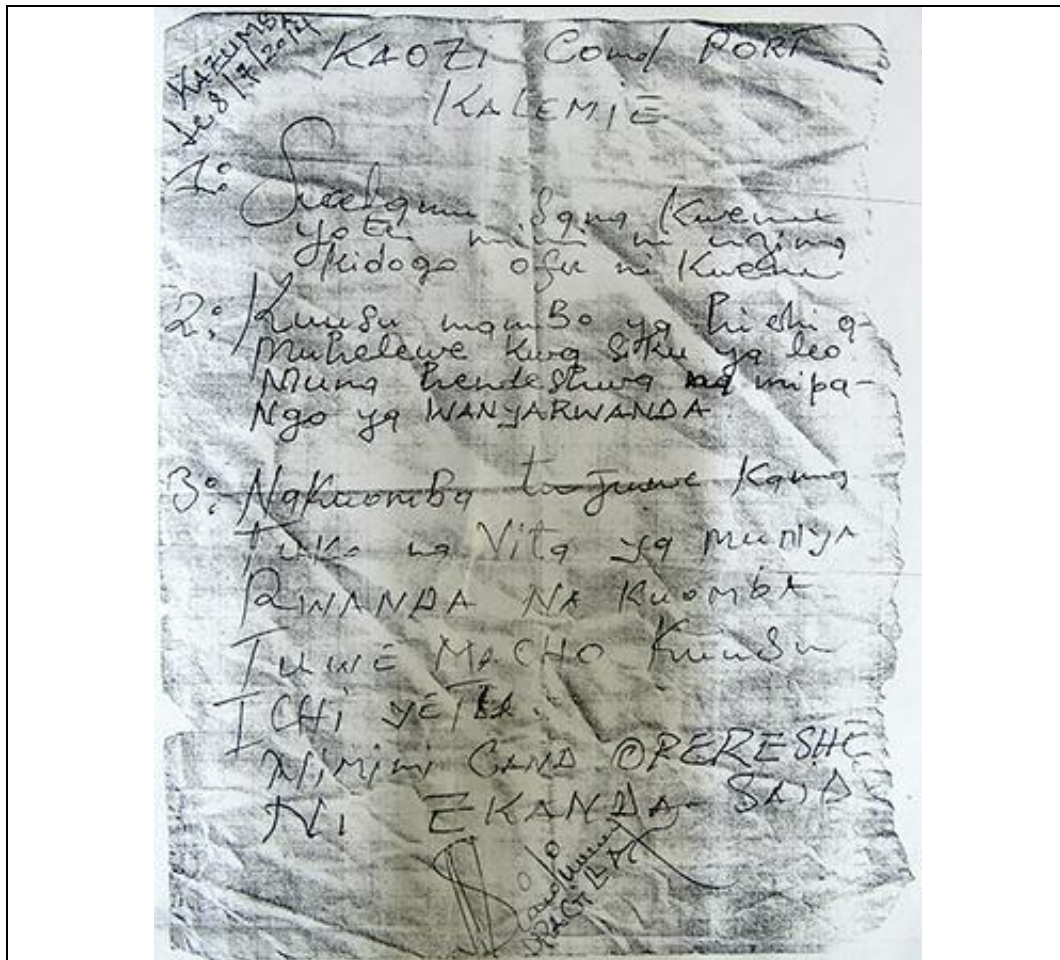 KAZUMBA
le 8/7/2014
KAOZI Comd PORT
KALEMIE
1: Sana Kwenu
yote mimi ni mzima
Kidogo ofu ni Kwenu
2: Kuusu mamBo ya hi echi a-
Muhelewe Kwa Siku ya leo
Muna hendeshwa na mipa-
Ngo ya WANYARWANDA
3: NaKuomBa tujuwe Kama
Tuko na Vita ya MUNYA
RWANDA NA KuombA
TuwE MACHO Kuusu
ICHi yETU.
Nimimi OPERESHE
Ni EKANDA SAID